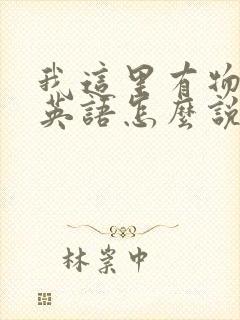 我這里有物
英語怎麼說
林崇中